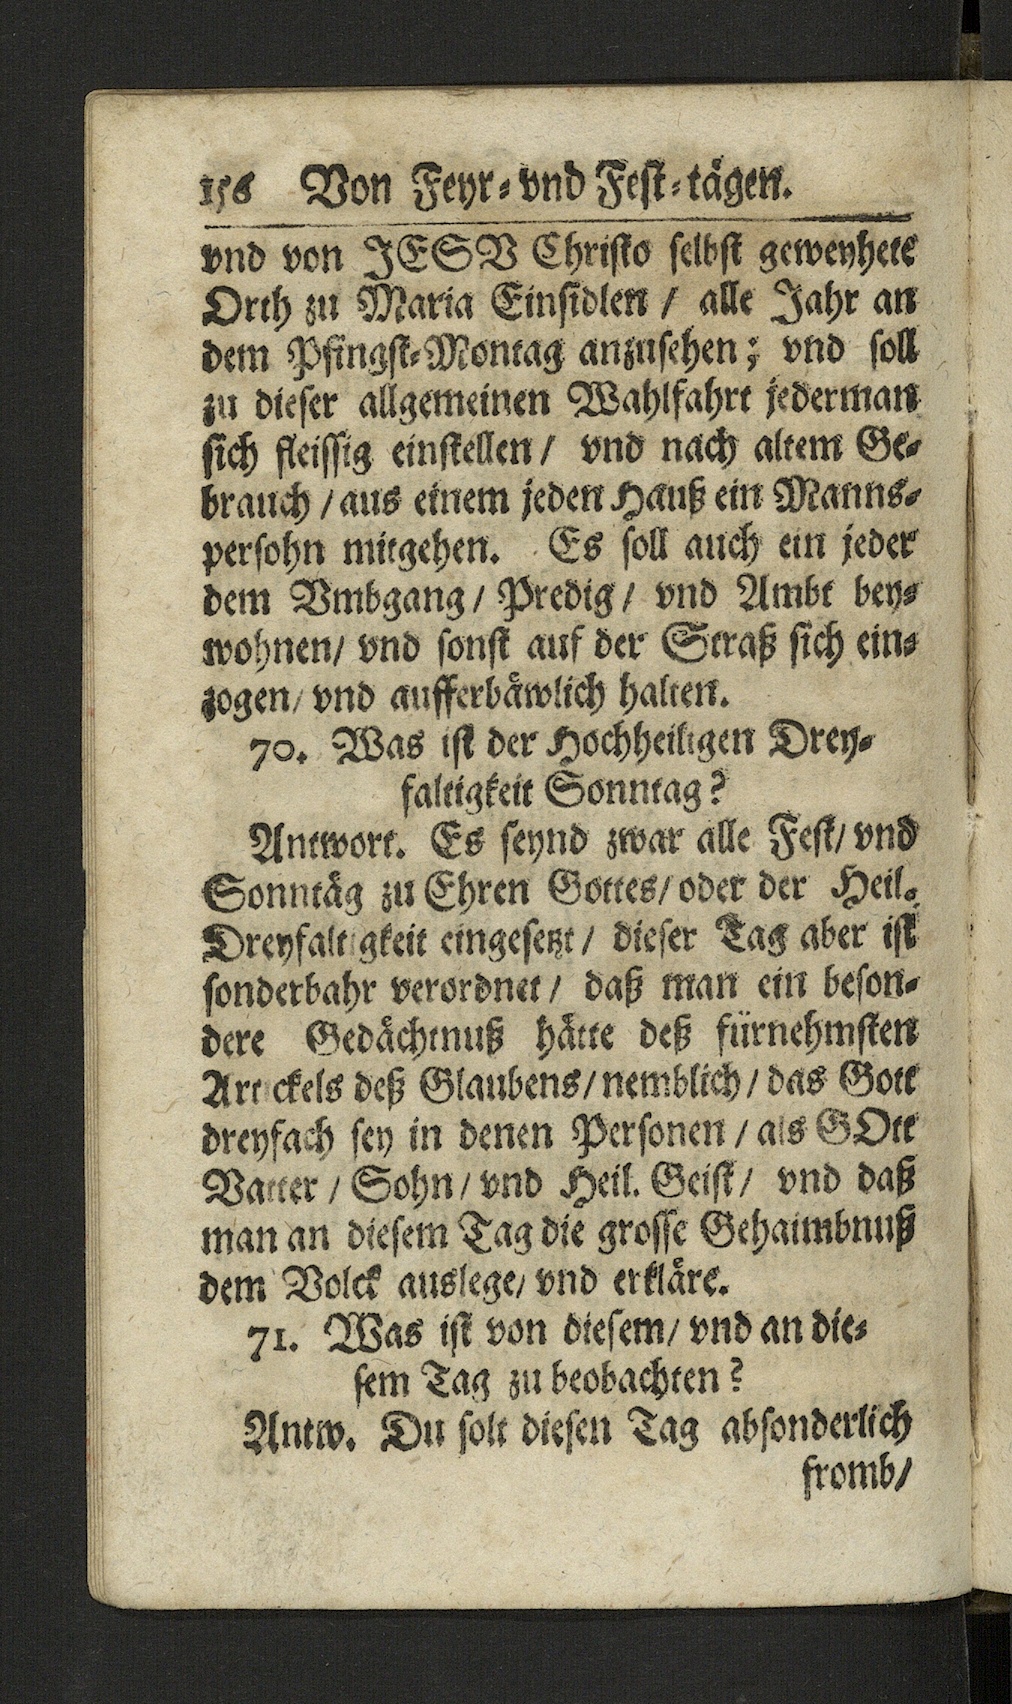 156 Von Feyr- vnd Fest-tägen.
vnd von JESV Christo selbst geweyhete
Orth zu Maria Einsidlen / alle Jahr an
dem Pfingst-Montag anzusehen; vnd soll
zu dieser allgemeinen Wahlfahrt jederman
sich fleissig einstellen / vnd nach altem Ge-
brauch / aus einem jeden Hauß ein Manns-
persohn mitgehen. Es soll auch ein jeder
dem Vmbgang / Predig / vnd Ambt bey-
wohnen / vnd sonst auf der Straß sich ein-
zogen / vnd aufferbäwlich halten.
70. Was ist der Hochheiligen Drey-
faltigkeit Sonntag?
Antwort. Es seynd zwar alle Fest / vnd
Sonntäg zu Ehren Gottes / oder der Heil.
Dreyfaltigkeit eingesetzt / dieser Tag aber ist
sonderbahr verordnet / daß man ein beson-
dere Gedächtnuß hätte deß fürnehmsten
Artickels deß Glaubens / nemblich / das Gott
dreyfach sey in denen Personen / als GOtt
Vatter / Sohn / vnd Heil. Geist / vnd daß
man an diesem Tag die grosse Gehaimbnuß
dem Volck auslege / vnd erkläre.
71. Was ist von diesem / vnd an die-
sem Tag zu beobachten?
Antw. Du solt diesen Tag absonderlich
fromb /